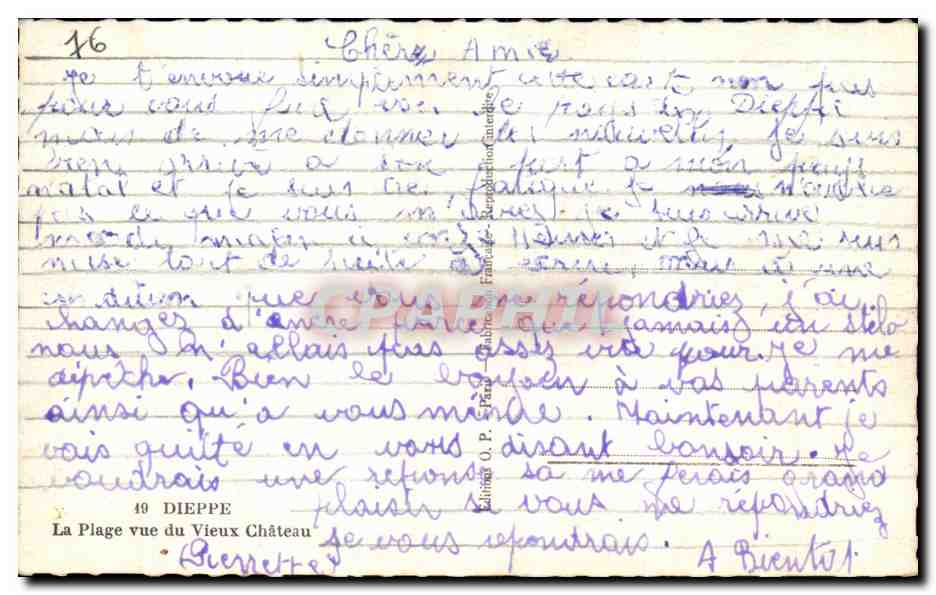 76
Chère Amie
je t'envoie simplement cette carte non pas
pour vous voir le pays Dieppe
mais de me donner des nouvelles je suis
bien arrive a bon port a mon pays
natal et je suis fatigue
pas ce que vous m'avez je suis arrive
mardi matin a heures et je me suis
mise tout de suite à écrire, mais à une
condition que vous me répondriez, j'ai
changez d'encre parce que jamais un stylo
nous n'allais pas assez vite pour je me
dépêcher. Bien le bonjoen à vos parents
ainsi qu'a vous même. Maintenant je
vais quitté en vous disant bonsoir. Je
voudrais une réponse sa me ferais grand
plaisir si vous me répondriez
je vous repondrais. A Bientôt
Pierrette
19 DIEPPE
La Plage vue du Vieux Château
Editions O. P. - Paris - Fabrication Française - Reproduction interdite
CPAPHIL